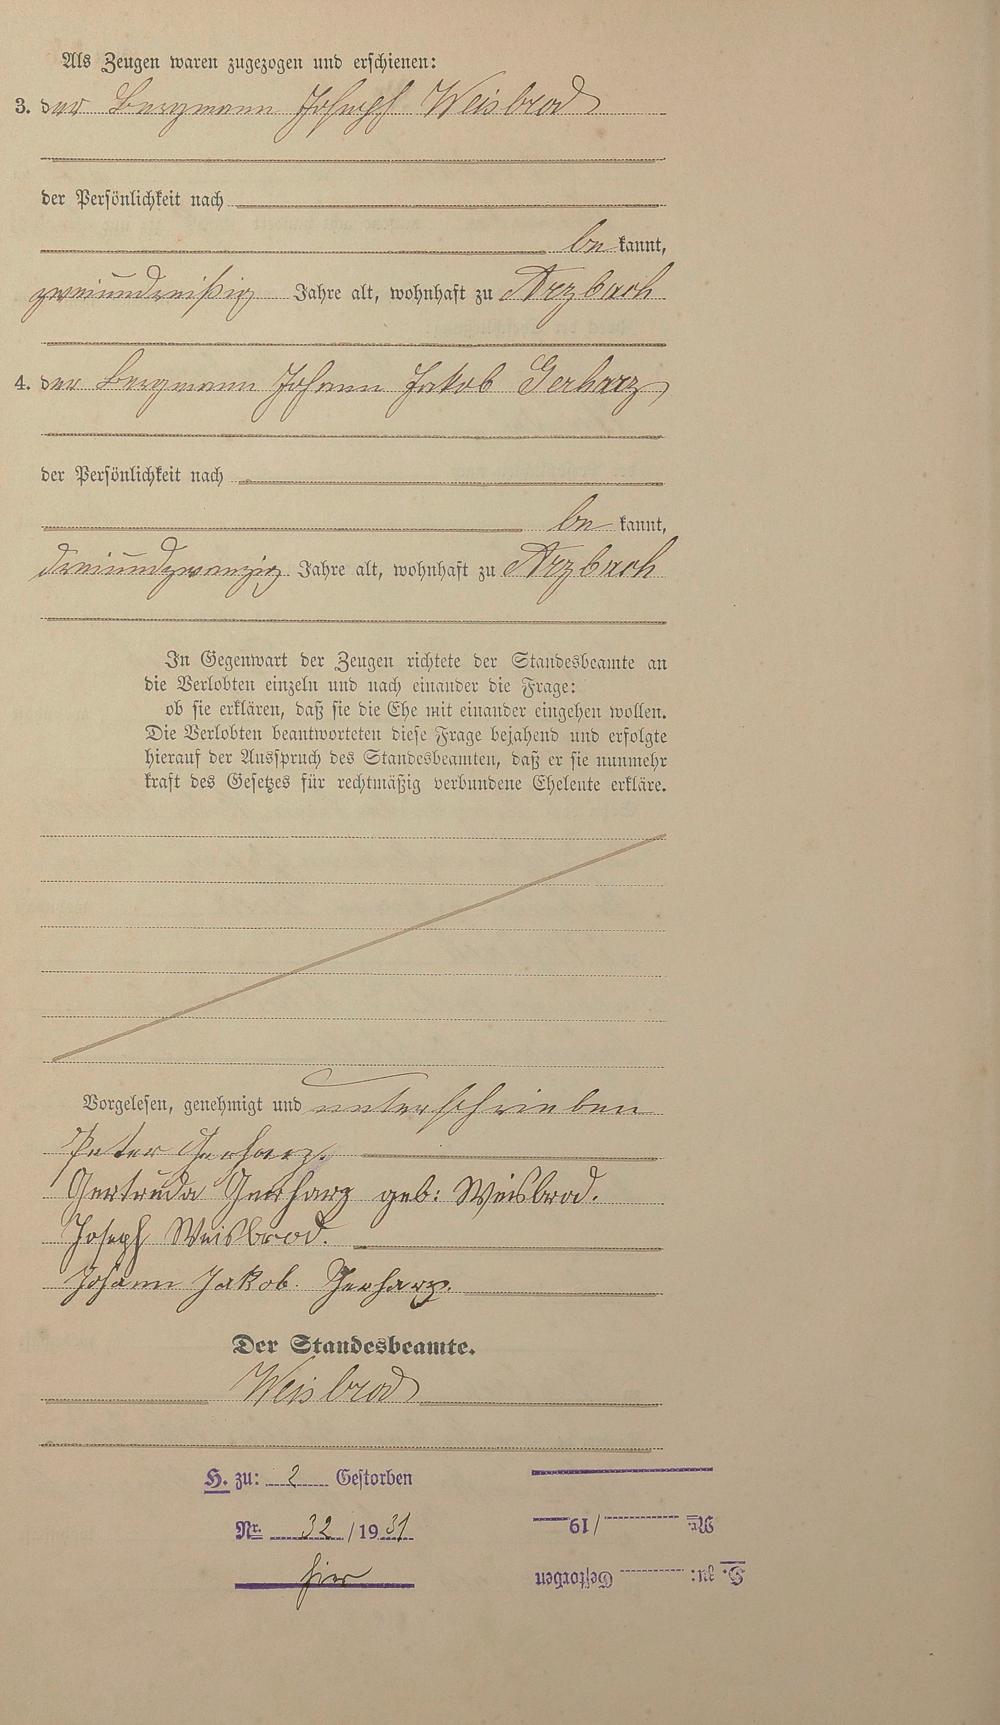 Als Zeugen waren zugezogen und erschienen:
3. der Bergmann Joseph Weisbrod
der Persönlichkeit nach
be kannt,
zweiunddreißig Jahre alt, wohnhaft zu Arzbach
4. der Bergmann Johann Jakob Gerharz
der Persönlichkeit nach
be kannt,
dreiundzwanzig Jahre alt, wohnhaft zu Arzbach
In Gegenwart der Zeugen richtete der Standesbeamte an
die Verlobten einzeln und nach einander die Frage:
ob sie erklären, daß sie die Ehe mit einander eingehen wollen.
Die Verlobten beantworteten diese Frage bejahend und erfolgte
hierauf der Ausspruch des Standesbeamten, daß er sie nunmehr
kraft des Gesetzes für rechtmäßig verbundene Eheleute erkläre.
Vorgelesen, genehmigt und unterschrieben
Peter Gerharz.
Gertruda Gerharz geb: Weisbrod.
Joseph Weisbrod.
Johann Jakob. Gerharz.
Der Standesbeamte.
Weisbrod
H. zu: 2 Gestorben
Nr. 32 / 19 31
hier
H. zu: Gestorben
Nr. / 19